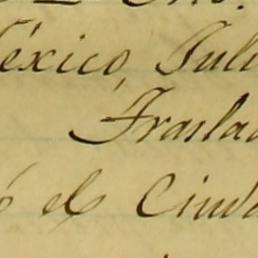 éxico, Juli
Traslad
ó el Ciuda